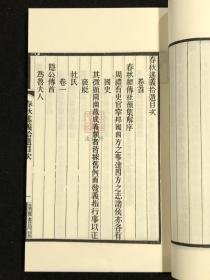 春秋述義拾遺目次
卷首
春秋經傳社預集解序
周禮有史官掌邦國四方之事達四方之志諸侯亦各有
國史
其微顯闡幽裁成義類者皆據舊例而發義指行事以正
褒貶
卷一
杜氏
隱公傳首
爲魯夫人
春秋述義拾遺目次
廣雅書局栞